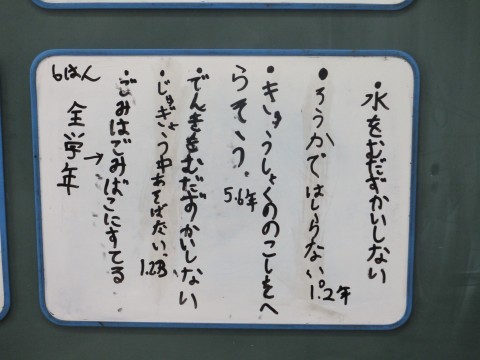 ・水をむだずかいしない
・ろうかではしらない。1.2年
・きゅうしょくののこしをへ
らそう。5.6年
・でんきをむだずかいしない
・じゅぎょう中あそばない。1.2.3
・ごみはごみばこにすてる
→全学年
6はん